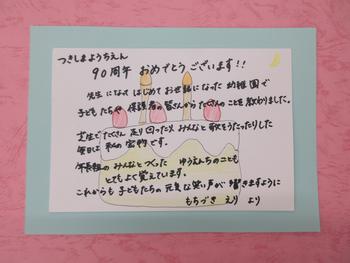 つきしまようちえん
90周年 おめでとうございます!!
先生になって はじめて お世話になった 幼稚園で
子どもたちや 保護者の皆さんから たくさんのことを 教わりました。
芝生でたくさん 走り回ったり みんなと歌をうたったりした
毎日は 私の宝物です。
年長組の みんなと つくった ゆうえんちのことも
とてもよく覚えています。
これからも 子どもたちの 元気な笑い声が 響きますように
もちづき えり より